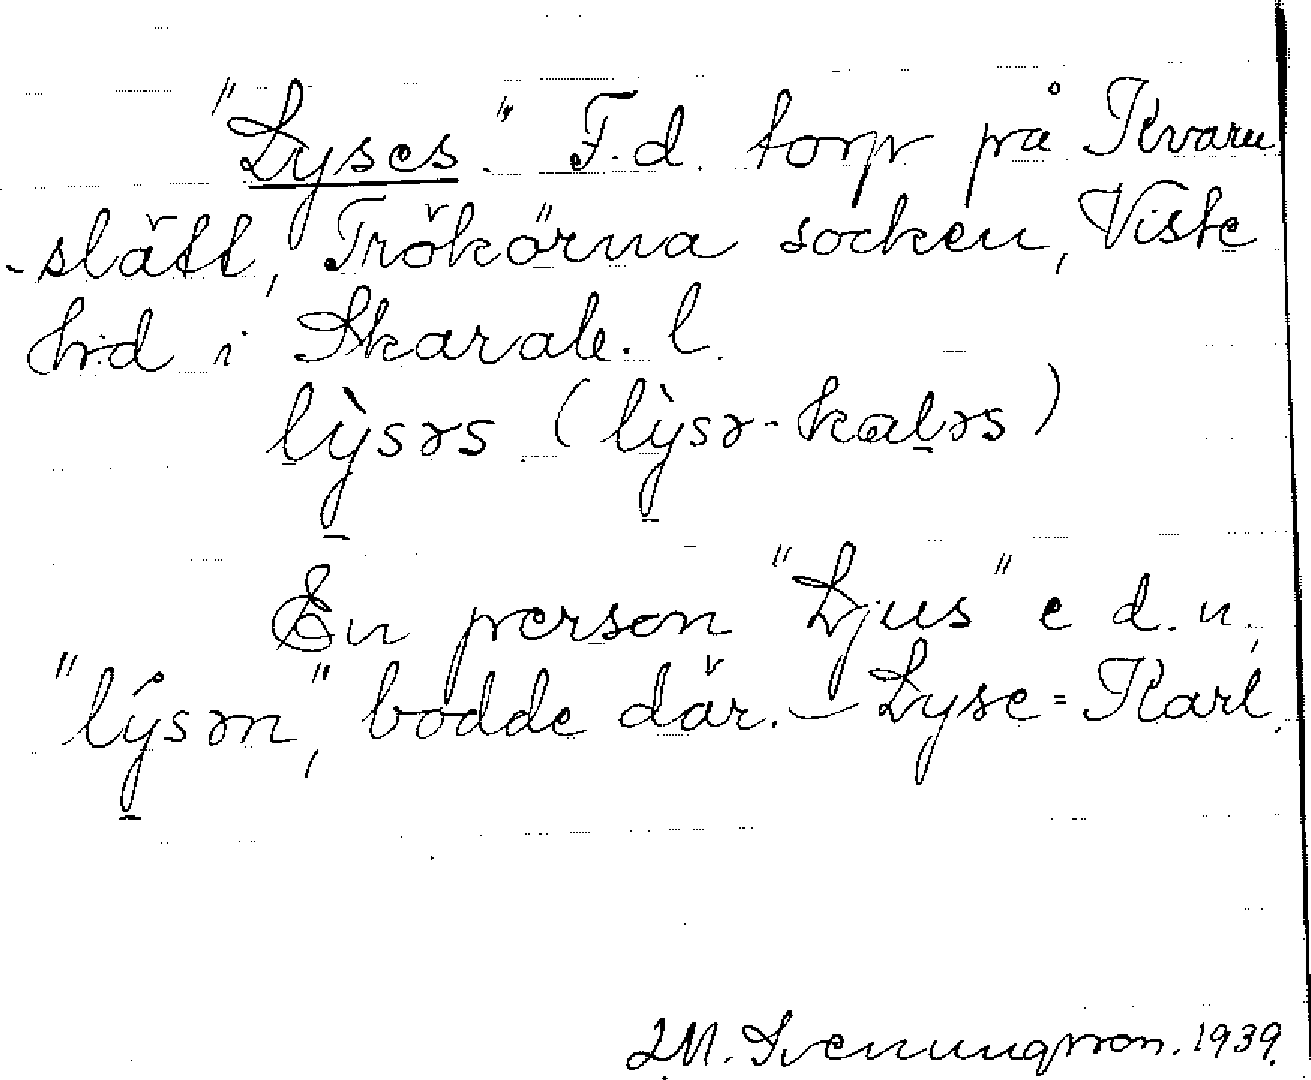 "Lyses." F.d. torp på Kvarn
-slätt, Trökörna socken, Viste
hd i Skarab. l.
lỳsəs (lỳsə-kaḷəs)
En person "Ljus" e d. n,
"lýsən," bodde där. – Lyse=Karl.
Svenungsson. 1939.